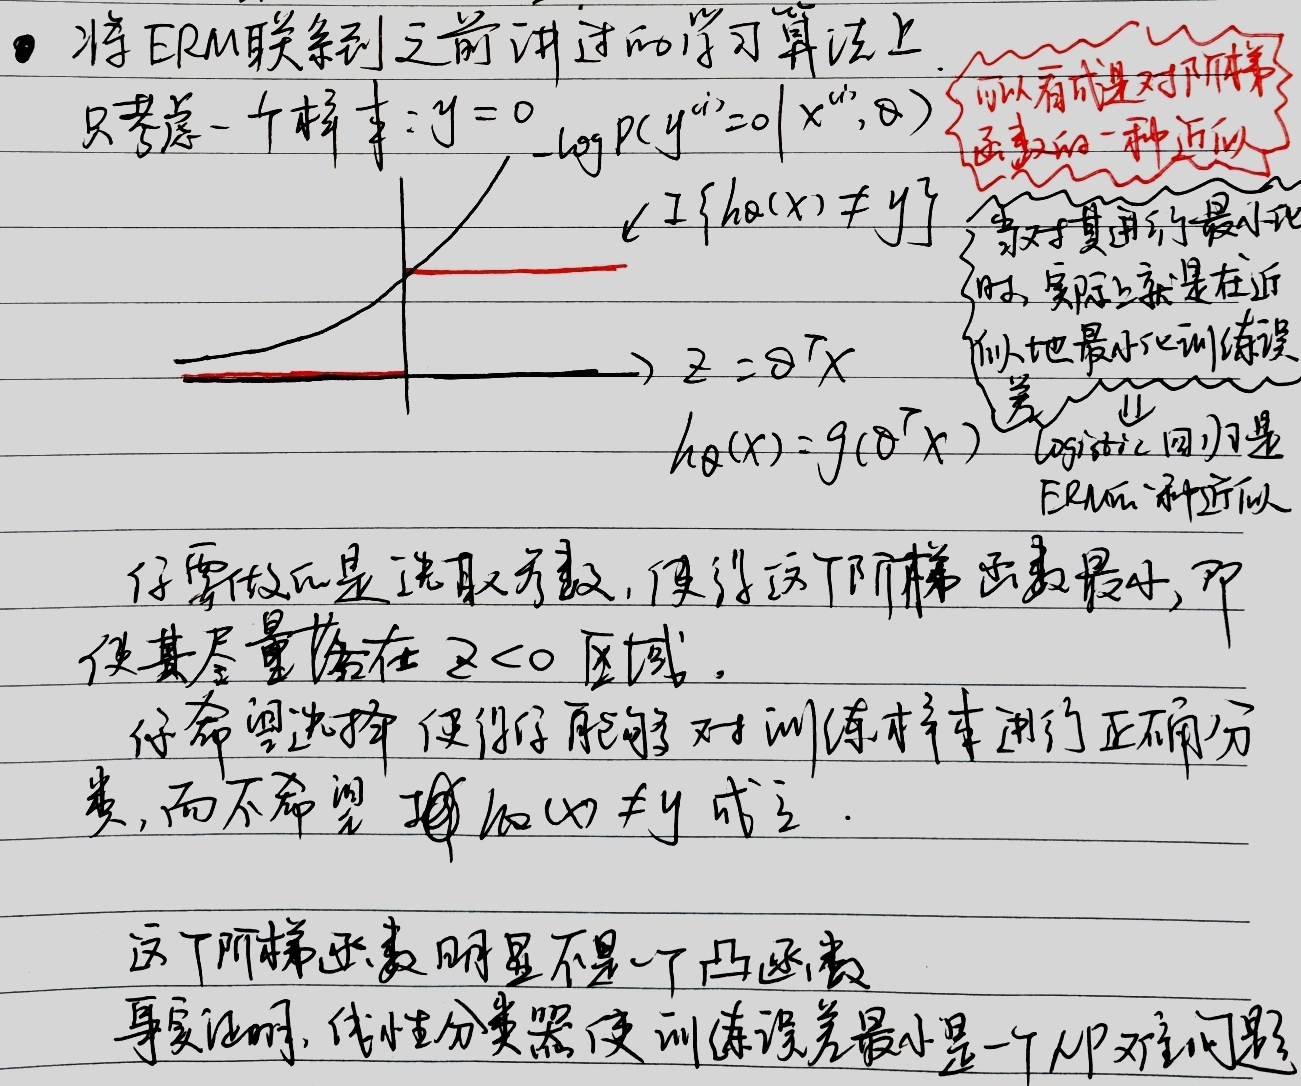 将ERM联系到之前讲过的学习算法上.
只考虑一个样本:y=0
-log P(y⁽ⁱ⁾=0|x⁽ⁱ⁾,θ)
可以看成是对阶梯
函数的一种近似
I{hθ(x)≠y}
当对其进行最小化
时,实际上就是在近
似地最小化训练误
差
⇓
z=θᵀx
hθ(x)=g(θᵀx)
logistic回归是
ERM的一种近似
仔要做的是选取参数,使得这个阶梯函数最小,即
使其尽量落在z<0区域.
仔希望选择 使得仔能够对训练样本进行正确分
类,而不希望 hθ(x)≠y成立.
这个阶梯函数明显不是一个凸函数
事实证明,线性分类器使训练误差最小是一个NP难问题